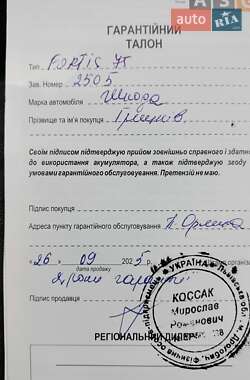 auto RIA
ГАРАНТІЙНИЙ
ТАЛОН
Тип FORTIS 75
Зав. Номер 2505
Марка автомобіля Шкода
Прізвище та ім'я покупця
Своїм підписом підтверджую прийом зовнішньо справного і здатн
до використання акумулятора, а також підтверджую згоду
умовами гарантійного обслуговування. Претензій не маю.
Підпис покупця
Адреса пункту гарантійного обслуговування
«26 09 2025 р.
дата продажу
Підпис продавця
РЕГІОНАЛЬНИЙ ДИЛЕР
УКРАЇНА
Львівська обл.
КОССАК
Мирослав
Романович